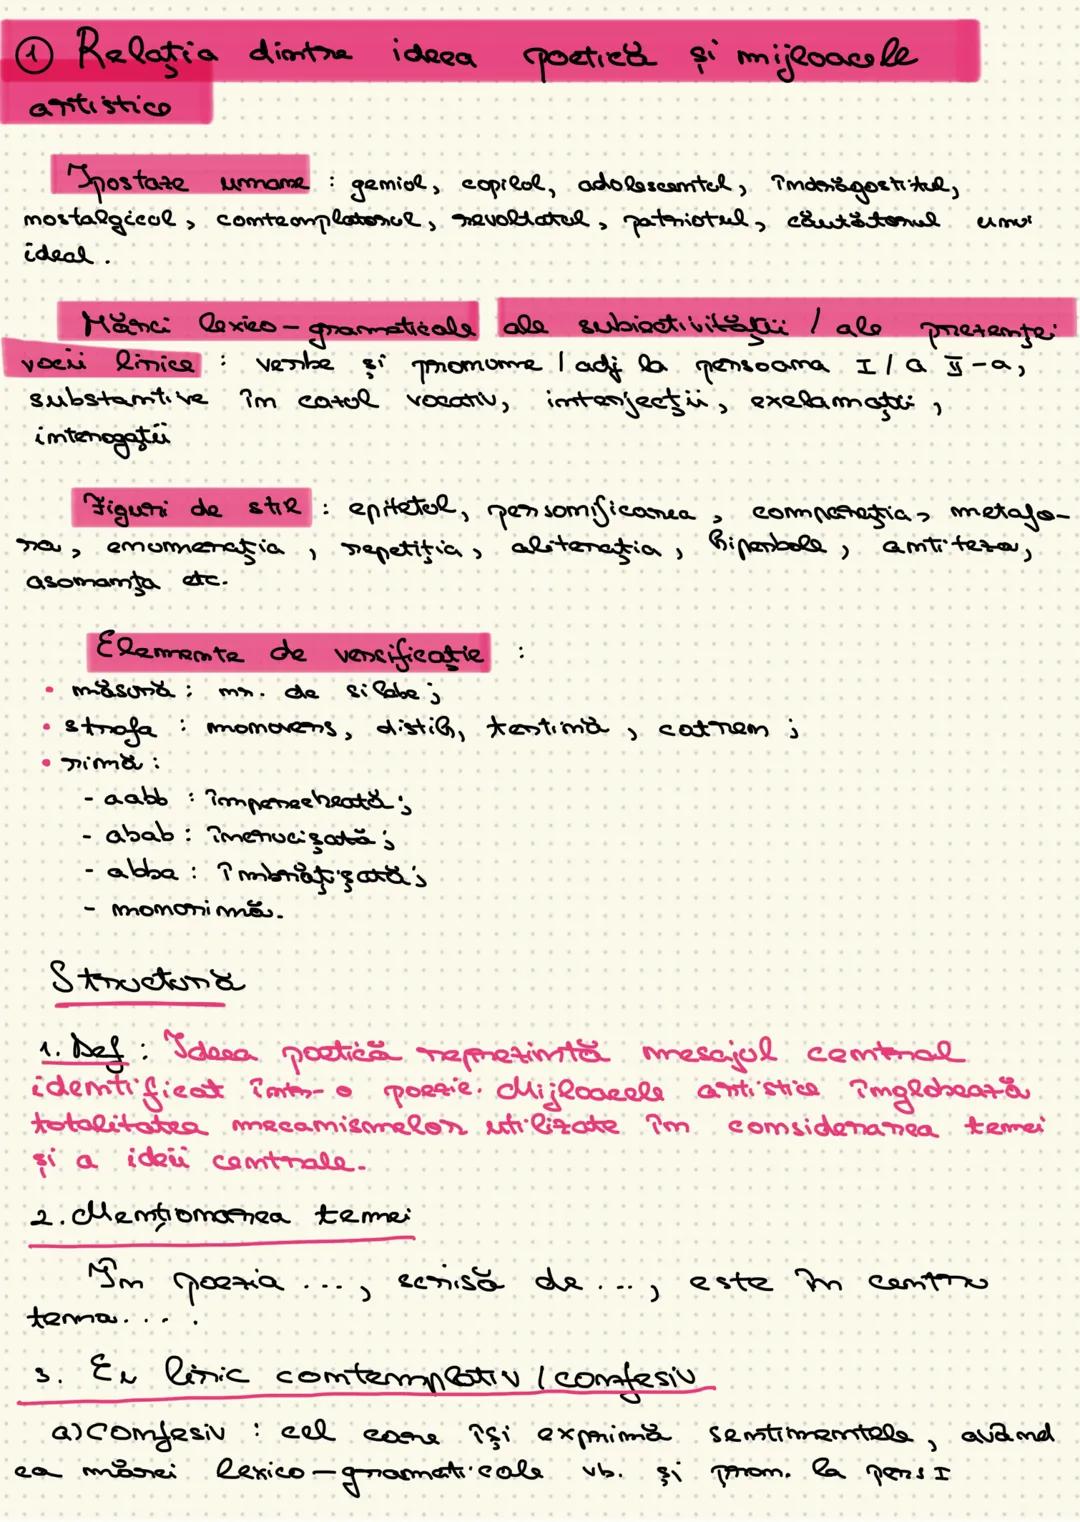 ① Relația dintre ideea poetică și mijloacele
artistice
Ipostaze umane : geniul, copilul, adolescentul, îndrăgostitul,
nostalgicul, contemplatorul, revoltatul, patriotul, căutătorul unui
ideal.
Mărci lexico-gramaticale ale subiectivității / ale prezenței
vocii lirice : verbe și pronume / adj la persoana I / a II-a,
substantive în cazul vocativ, interjecții, exclamații,
interogații
Figuri de stil : epitetul, personificarea, comparația, metafo-
ra, enumerația, repetiția, aliterația, hiperbola, antiteza,
asonanța etc.
Elemente de versificație :
• măsură : nr. de silabe;
• strofa : monovers, distih, terțină, catren ;
• rimă :
- aabb : împerecheată;
- abab : încrucișată;
- abba : îmbrățișată;
- monorimă.
Structură
1. Def : Ideea poetică reprezintă mesajul central
identificat într-o poezie. Mijloacele artistice înglobează
totalitatea mecanismelor utilizate în considerarea temei
și a ideii centrale.
2. Menționarea temei
În poezia ..., scrisă de ..., este în centru
tema... .
3. Eu liric contemplativ / confesiv
a) Confesiv : cel care își exprimă sentimentele, având
ca mărci lexico-gramaticale vb. și pron. la pers I